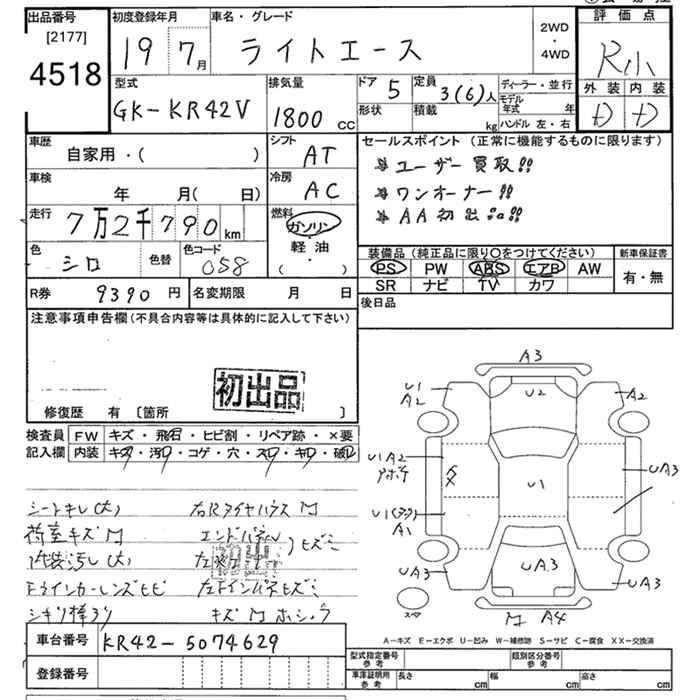 出品番号
[2177]
4518
初度登録年月
19 7月
車名・グレード
ライトエース
2WD
・
4WD
評価点
R小
外装 内装
D D
型式
GK-KR42V
排気量
1800 CC
ドア 5
定員 3(6)人
形状
積載 kg
ディーラー・並行
モデル年式 年
ハンドル 左・右
車歴
自家用・( )
シフト
AT
セールスポイント (正常に機能するものに限ります)
ユーザー買取!!
ワンオーナー!!
AA初出品!!
車検
年 月( 日)
冷房
AC
走行
7万2千790 km
燃料
ガソリン
・
軽・油
・
( )
色
シロ
色替
色コード
058
装備品 (純正品に限り○をつけてください)
新車保証書
PS PW ABS エアB AW
有・無
SR ナビ TV カワ
R券 9390 円
名変期限 月 日
後日品
注意事項申告欄 (不具合内容等は具体的に記入して下さい)
初出品
修復歴 有 [箇所 ]
検査員 FW キズ・飛石・ヒビ割・リペア跡・×要
記入欄 内装 キズ・汚レ・コゲ・穴・スレ・キレ・破レ
シートキレ(大) 右Rタイヤハウス M
荷室キズM エンドパネル
内装汚レ(大)
初出
ヒズミ
Fウインカーレンズヒビ 左Fインパネヒズミ
シキリ棒ナシ
A3
U1
A2
U2
A2
U1A2
アホチ
U1
UA3
A1
UA3
UA3
UA3
M A4
スペア
A-キズ E-エクボ U-凹み W-補修跡 S-サビ C-腐食 XX-交換済
車台番号 KR42-5074629
登録番号
型式指定番号
参考
類別区分番号
参考
車庫証明用
参考
長さ cm 幅 cm 高さ cm